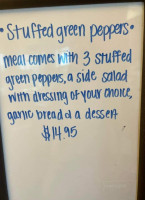 • Stuffed green peppers •
meal comes with 3 stuffed
green peppers, a side salad
with dressing of your choice,
garlic bread d a dessert
$14.95